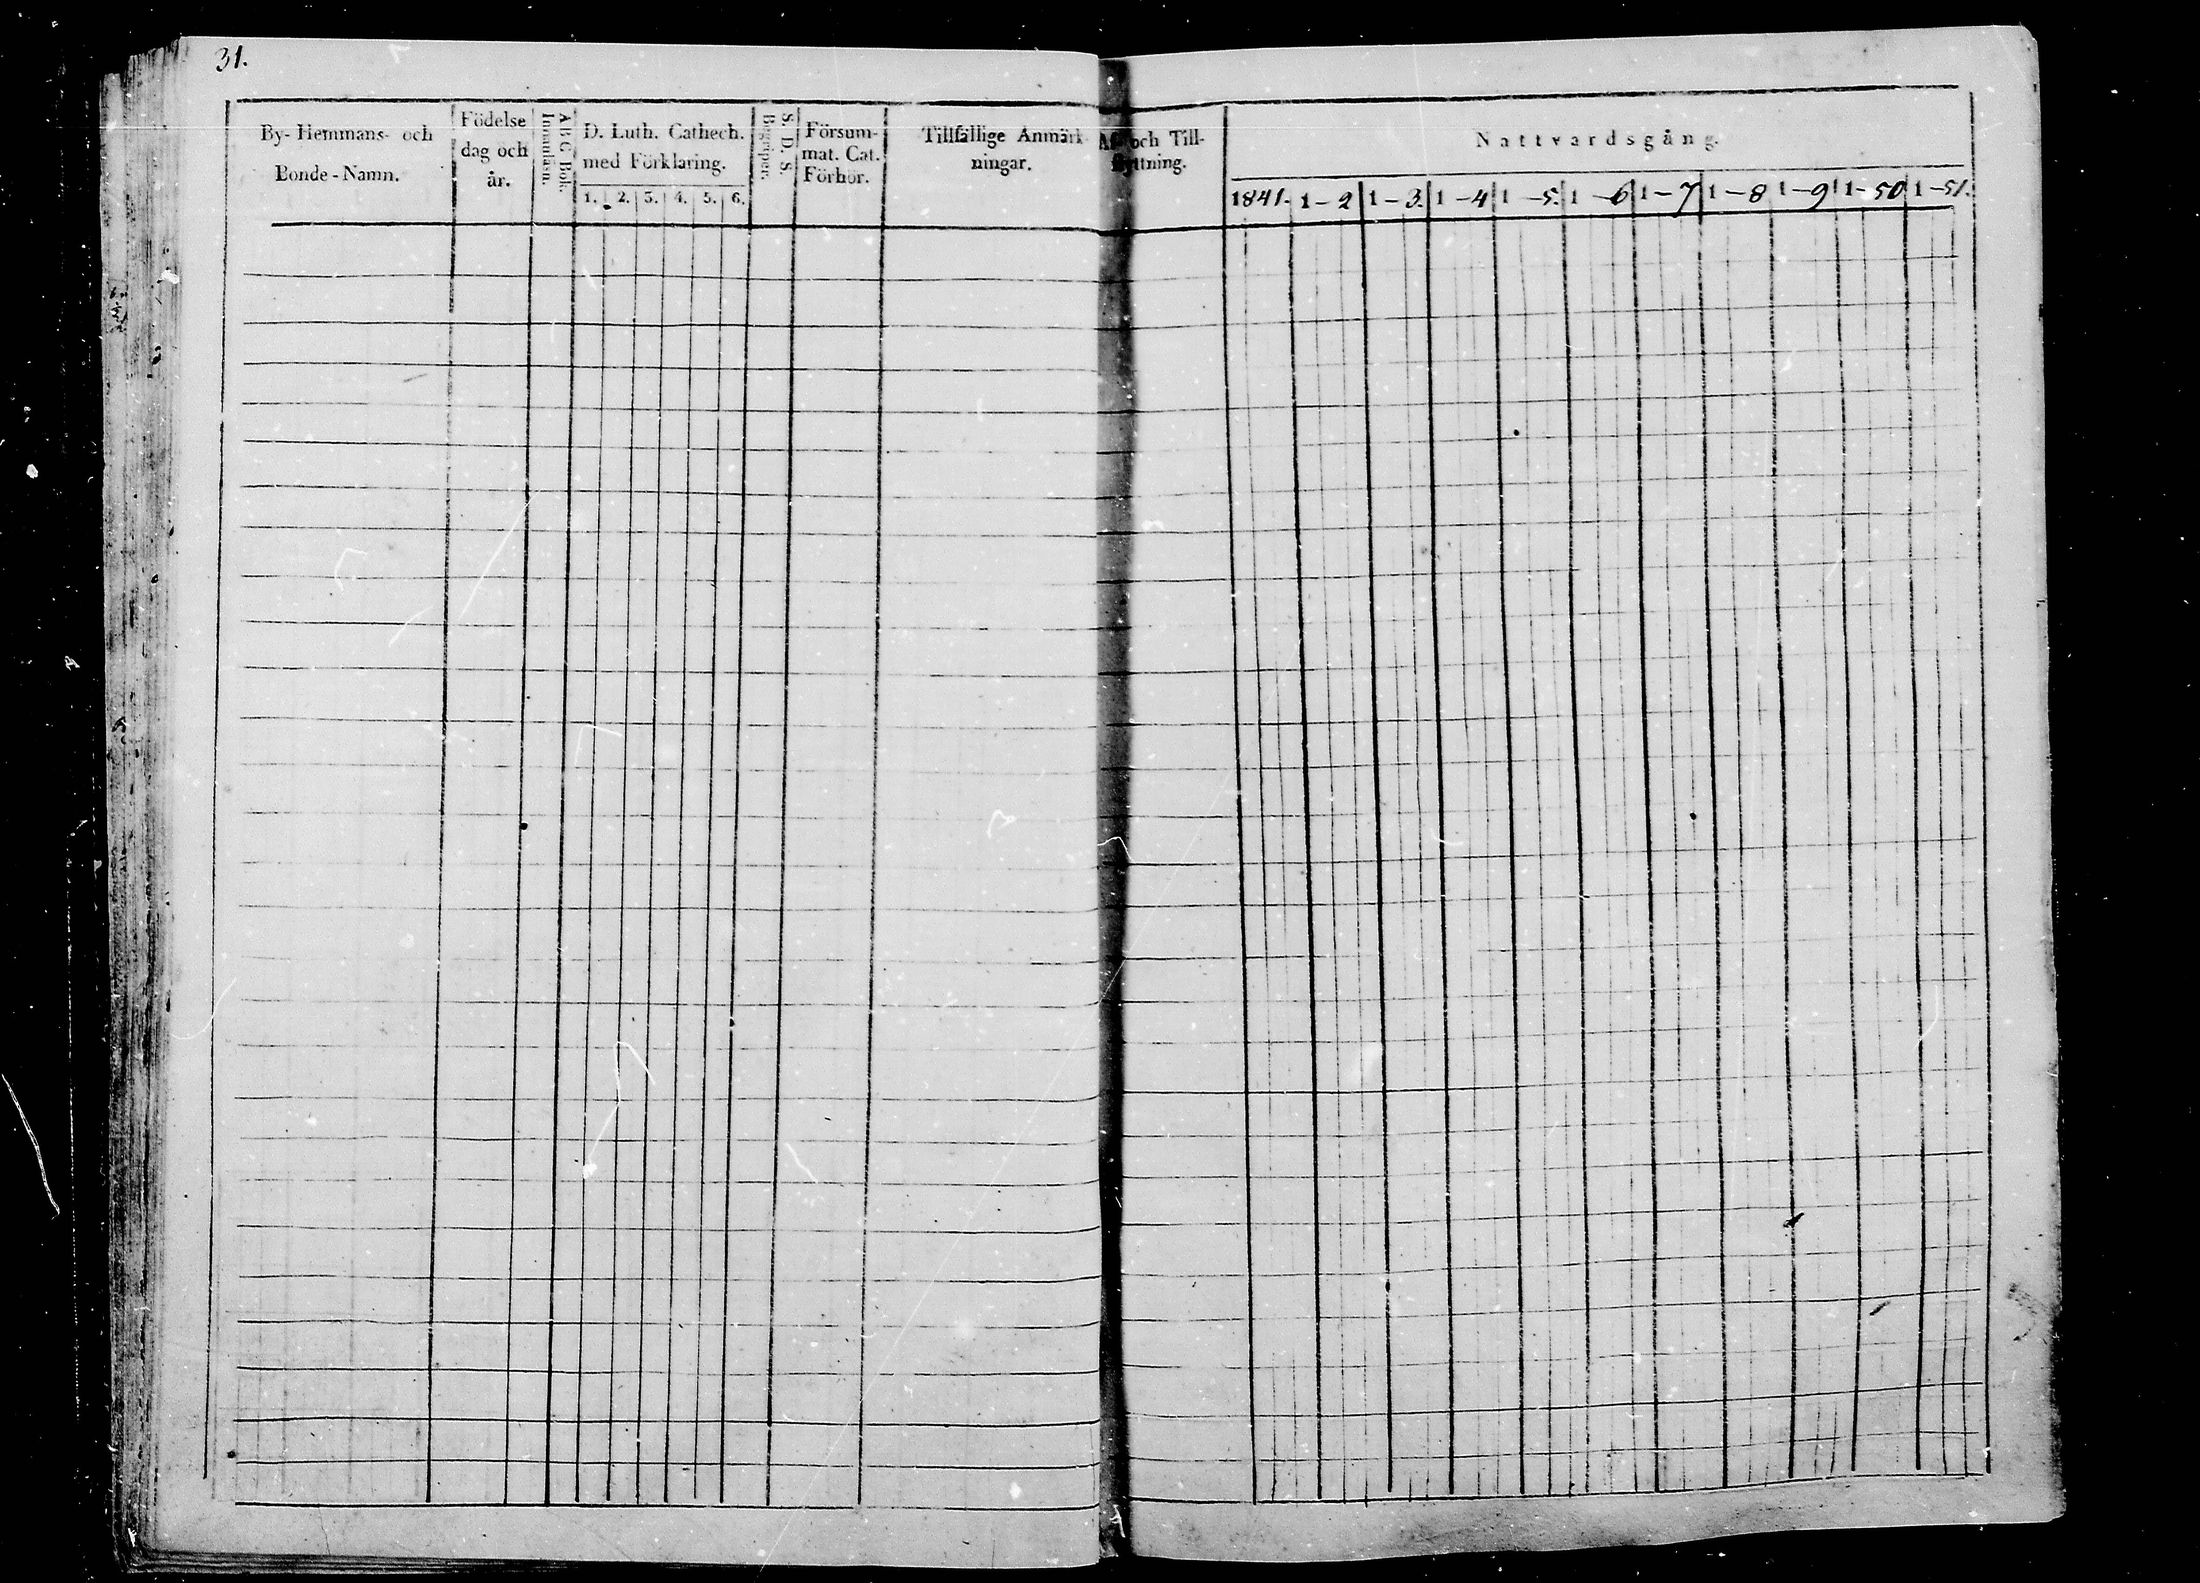 31.
By- Hemmans- och
Bonde-Namn.
Födelse
dag och
år.
A B C Bok.
Innanläsn.
D. Luth. Cathech.
med Förklaring.
1. 2. 3. 4. 5. 6.
S. D. S.
Begreper.
Försum-
mat. Cat.
Förhör.
Tillfällige Anmärk
ningar.
och Till-
flyttning.
Nattvardsgång.
1841. 1-2 1-3. 1-4 1-5. 1-6 1-7 1-8 1-9 1-50 1-51.